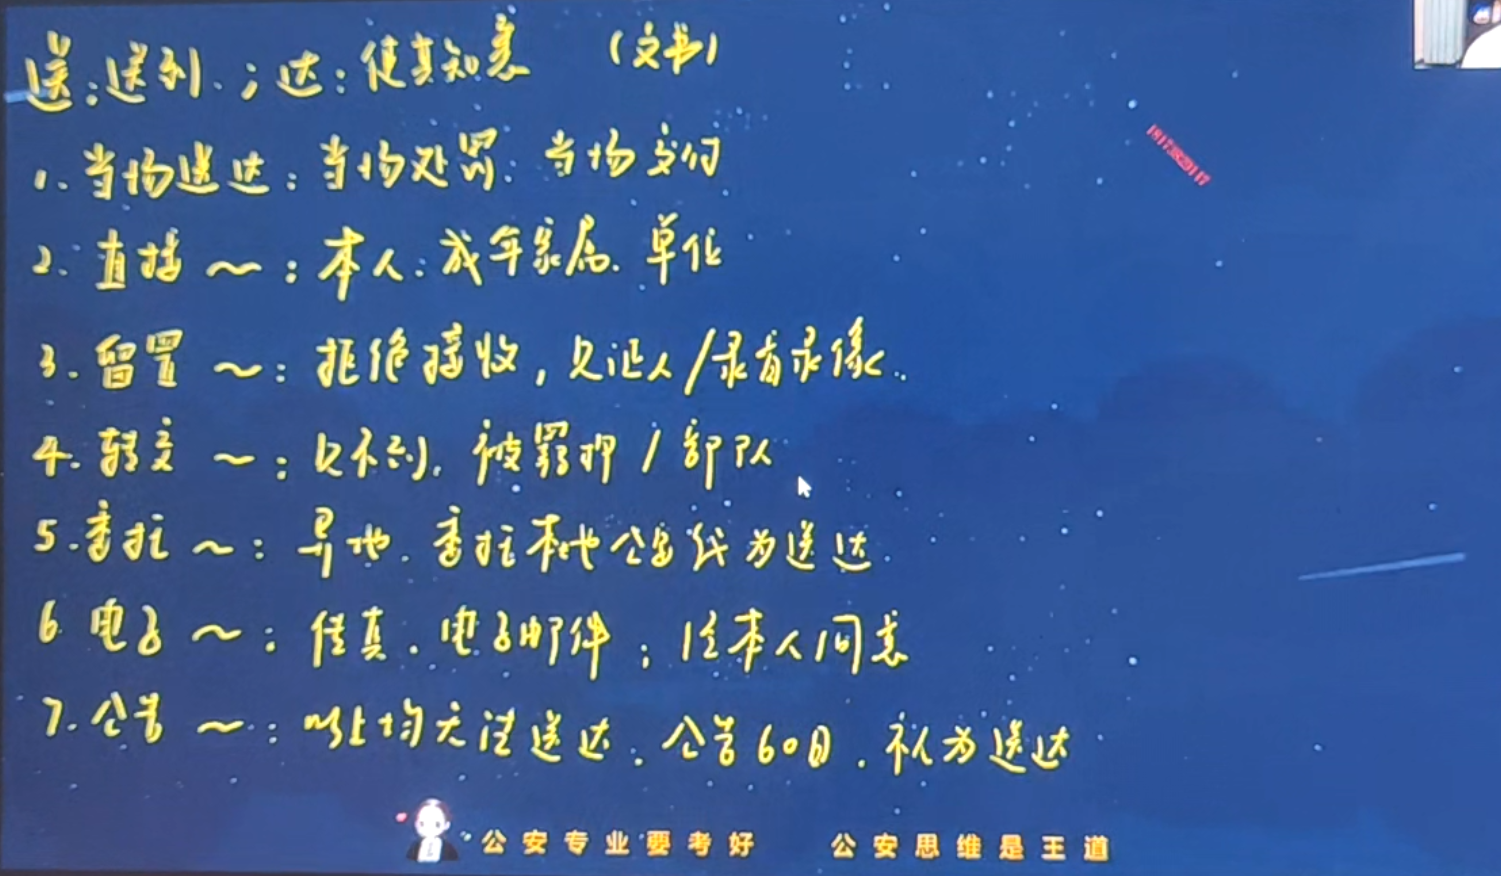 送：送到.；达：使其知悉 （文书）
18173829117
1. 当场送达：当场处罚. 当场交付
2. 直接～：本人. 成年家属. 单位
3. 留置～：拒绝接收，见证人/录音录像.
4. 转交～：见不到. 被羁押/部队
5. 委托～：异地. 委托本地公安代为送达
6 电子～：传真. 电子邮件；经本人同意
7. 公告～：以上均无法送达. 公告60日. 视为送达
公安专业要考好 公安思维是王道